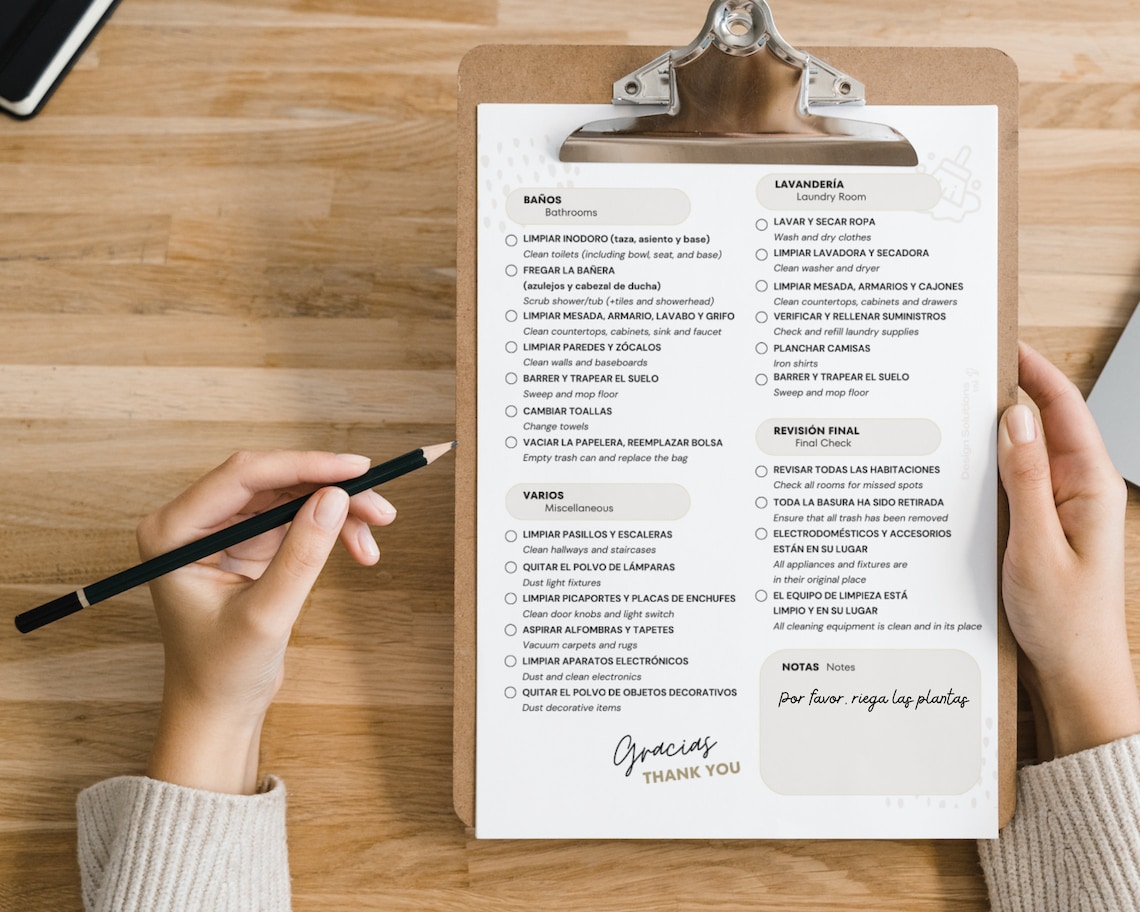 BAÑOS
Bathrooms
LIMPIAR INODORO (taza, asiento y base)
Clean toilets (including bowl, seat, and base)
FREGAR LA BAÑERA
(azulejos y cabezal de ducha)
Scrub shower/tub (+tiles and showerhead)
LIMPIAR MESADA, ARMARIO, LAVABO Y GRIFO
Clean countertops, cabinets, sink and faucet
LIMPIAR PAREDES Y ZÓCALOS
Clean walls and baseboards
BARRER Y TRAPEAR EL SUELO
Sweep and mop floor
CAMBIAR TOALLAS
Change towels
VACIAR LA PAPELERA, REEMPLAZAR BOLSA
Empty trash can and replace the bag
VARIOS
Miscellaneous
LIMPIAR PASILLOS Y ESCALERAS
Clean hallways and staircases
QUITAR EL POLVO DE LÁMPARAS
Dust light fixtures
LIMPIAR PICAPORTES Y PLACAS DE ENCHUFES
Clean door knobs and light switch
ASPIRAR ALFOMBRAS Y TAPETES
Vacuum carpets and rugs
LIMPIAR APARATOS ELECTRÓNICOS
Dust and clean electronics
QUITAR EL POLVO DE OBJETOS DECORATIVOS
Dust decorative items
Gracias
THANK YOU
LAVANDERÍA
Laundry Room
LAVAR Y SECAR ROPA
Wash and dry clothes
LIMPIAR LAVADORA Y SECADORA
Clean washer and dryer
LIMPIAR MESADA, ARMARIOS Y CAJONES
Clean countertops, cabinets and drawers
VERIFICAR Y RELLENAR SUMINISTROS
Check and refill laundry supplies
PLANCHAR CAMISAS
Iron shirts
BARRER Y TRAPEAR EL SUELO
Sweep and mop floor
REVISIÓN FINAL
Final Check
REVISAR TODAS LAS HABITACIONES
Check all rooms for missed spots
TODA LA BASURA HA SIDO RETIRADA
Ensure that all trash has been removed
ELECTRODOMÉSTICOS Y ACCESORIOS
ESTÁN EN SU LUGAR
All appliances and fixtures are
in their original place
EL EQUIPO DE LIMPIEZA ESTÁ
LIMPIO Y EN SU LUGAR
All cleaning equipment is clean and in its place
NOTAS Notes
Por favor, riega las plantas